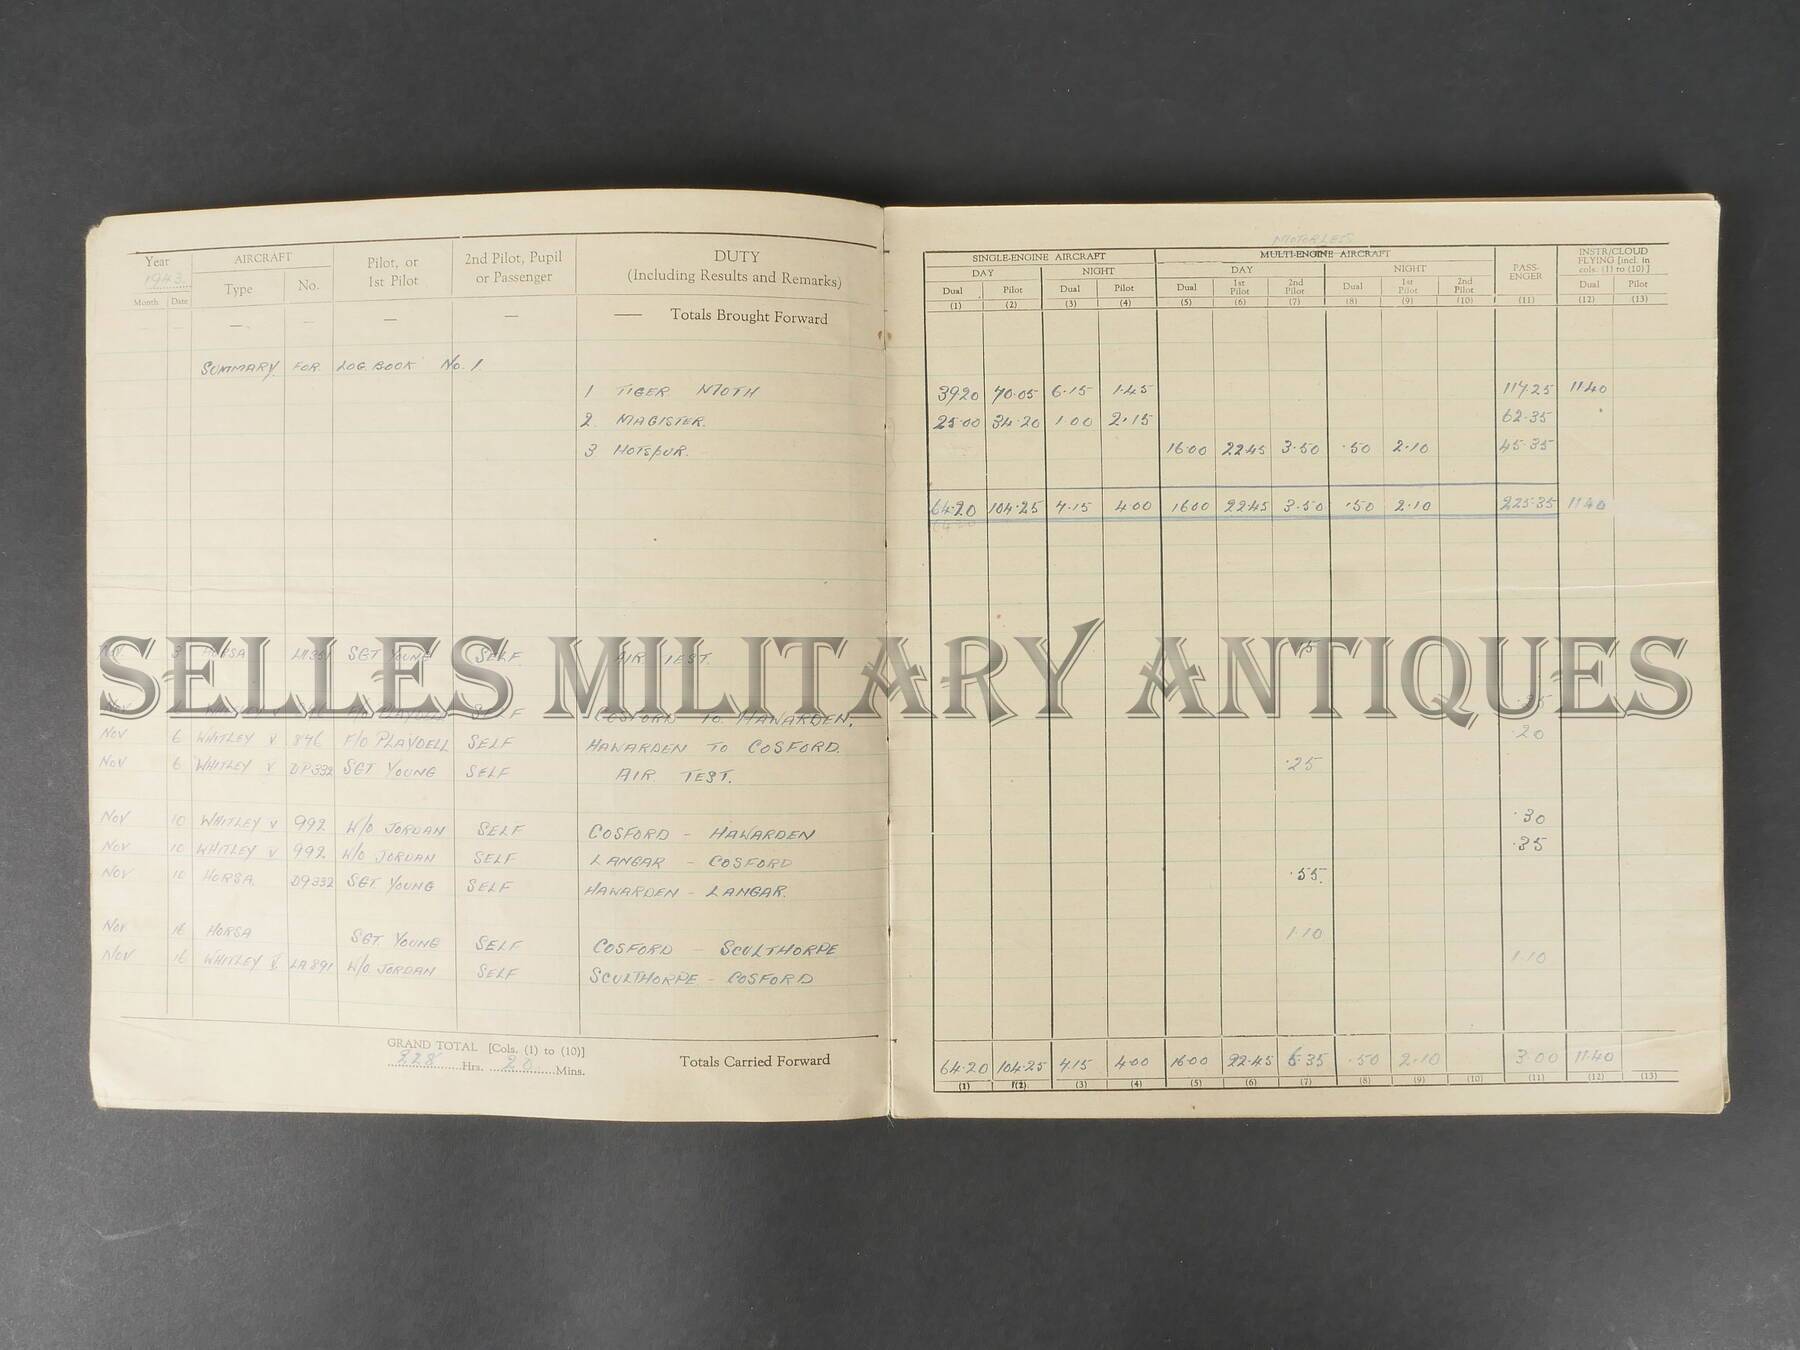 Year AIRCRAFT Pilot, or 1st Pilot 2nd Pilot, Pupil or Passenger DUTY (Including Results and Remarks)
1943 Type No.
Month Date
— — — — — — — Totals Brought Forward
SUMMARY FOR LOG BOOK No. 1
1 TIGER MOTH
2 MAGISTER.
3 HOTSPUR.
3 HORSA SGT YOUNG SELF AIR TEST.
NOV WHITLEY V 846 F/O PLAYDELL SELF COSFORD TO HAWARDEN.
NOV 6 WHITLEY V 846 F/O PLAYDELL SELF HAWARDEN TO COSFORD.
NOV 6 WHITLEY V DP332 SGT YOUNG SELF AIR TEST.
NOV 10 WHITLEY V 992 W/O JORDAN SELF COSFORD - HAWARDEN
NOV 10 WHITLEY V 992 W/O JORDAN SELF LANGAR - COSFORD
NOV 10 HORSA SGT YOUNG SELF HAWARDEN - LANGAR.
NOV 16 HORSA SGT YOUNG SELF COSFORD - SCULTHORPE
NOV 16 WHITLEY V LA891 W/O JORDAN SELF SCULTHORPE - COSFORD
GRAND TOTAL [Cols. (1) to (10)]
228 Hrs. 20 Mins.
Totals Carried Forward
MOTORLESS
SINGLE-ENGINE AIRCRAFT MULTI-ENGINE AIRCRAFT PASS-ENGER INSTR/CLOUD FLYING [incl. in cols. (1) to (10)]
DAY NIGHT DAY NIGHT
Dual Pilot Dual Pilot Dual 1st Pilot 2nd Pilot Dual 1st Pilot 2nd Pilot Dual Pilot
(1) (2) (3) (4) (5) (6) (7) (8) (9) (10) (11) (12) (13)
39.20 70.05 6.15 1.45 117.25 11.40
25.00 34.20 1.00 2.15 62.35
16.00 22.45 3.50 .50 2.10 45.35
64.20 104.25 7.15 4.00 16.00 22.45 3.50 .50 2.10 225.35 11.40
.20
.25
.30
.35
.55.
1.10
1.10
64.20 104.25 7.15 4.00 16.00 22.45 6.35 .50 2.10 3.00 11.40
(1) (2) (3) (4) (5) (6) (7) (8) (9) (10) (11) (12) (13)
SELLES MILITARY ANTIQUES